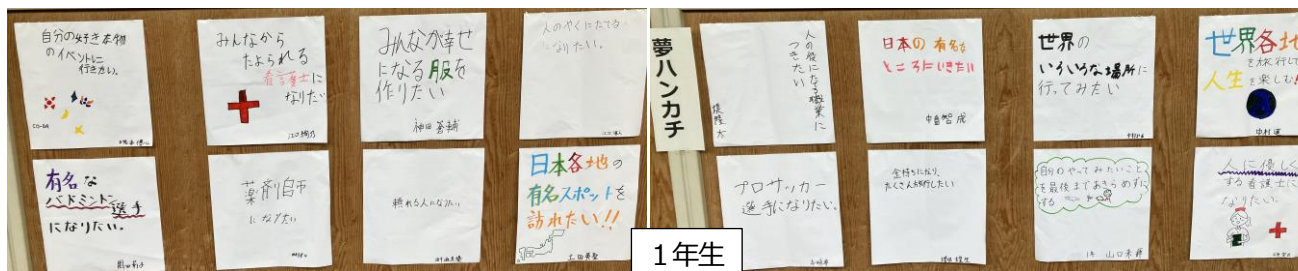 自分の好きな物
のイベントに
行きたい。
みんなから
たよられる
看護士に
なりたい
みんなが幸せ
になる服を
作りたい
神田蒼輔
人のやくにたてる
になりたい。
有名な
バドミントン選手
になりたい。
薬剤師
になりたい
頼れる人になりたい
日本各地の
有名スポットを
訪れたい!!
夢ハンカチ
人の役になる職業に
つきたい
日本の有名な
ところにいきたい
世界の
いろいろな場所に
行ってみたい
世界各地
を旅行して
人生を楽しむ!!
中村
プロサッカー
選手になりたい。
金持ちになり、
たくさん旅行したい
自分のやってみたいこと
を最後まであきらめずに
する
1年 山口
人に優しく
する看護士に
なりたい。
1年生